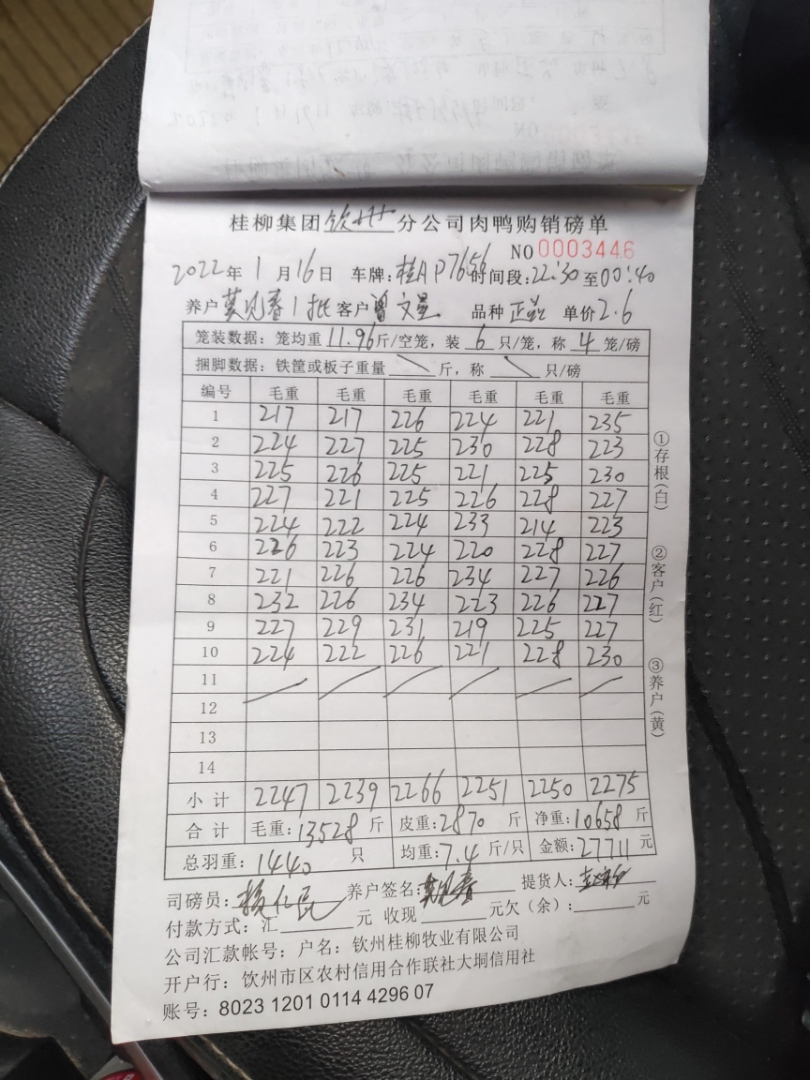 桂柳集团钦州分公司肉鸭购销磅单
NO 0003446
2022年1月16日 车牌:桂AP7656时间段:22:30至00:40
养户莫见春1批客户曾文星 品种 正兰 单价2.6
笼装数据:笼均重11.96斤/空笼,装6只/笼,称4笼/磅
捆脚数据:铁筐或板子重量 \ 斤,称 \ 只/磅
编号 毛重 毛重 毛重 毛重 毛重 毛重
1 217 217 226 224 221 235
2 224 227 225 230 228 223
3 225 226 225 221 225 230
4 227 221 225 226 228 227
5 224 222 224 233 214 223
6 226 223 224 220 228 227
7 221 226 226 234 227 226
8 232 226 234 223 226 227
9 227 229 231 219 225 227
10 224 222 226 221 228 230
11
12
13
14
小计 2247 2239 2266 2251 2250 2275
合计 毛重:13528斤 皮重:2870斤 净重:10658斤
总羽重:1440只 均重:7.4斤/只 金额:27711元
司磅员: 养户签名:莫见春 提货人:
付款方式:汇 元 收现 元欠(余): 元
公司汇款帐号:户名:钦州桂柳牧业有限公司
开户行:饮州市区农村信用合作联社大垌信用社
账号:8023 1201 0114 4296 07
①存根(白)
②客户(红)
③养户(黄)